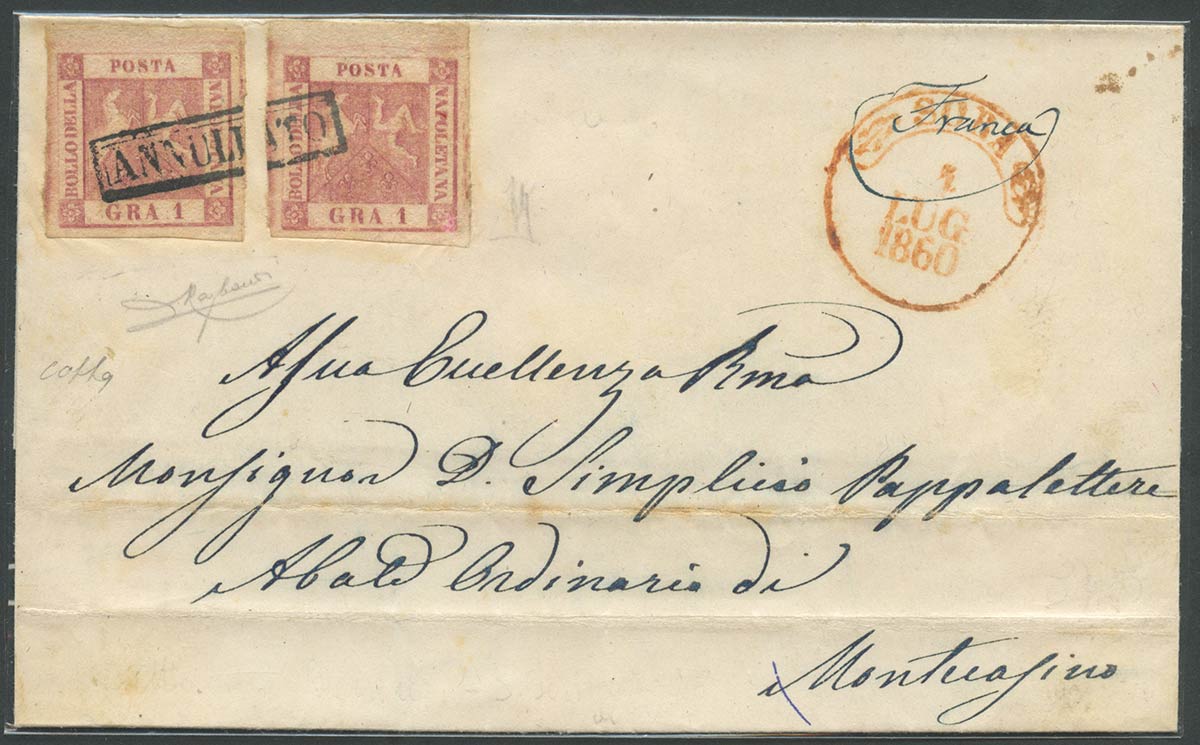 POSTA
BOLLO DELLA
NAPOLETANA
GRA 1
POSTA
BOLLO DELLA
NAPOLETANA
GRA 1
ANNULLATO
Franca
SORA
1
LUG
1860
A Sua Eccellenza Rma
Monsignor D. Simplicio Pappalettere
Abate Ordinario di
Montecasino